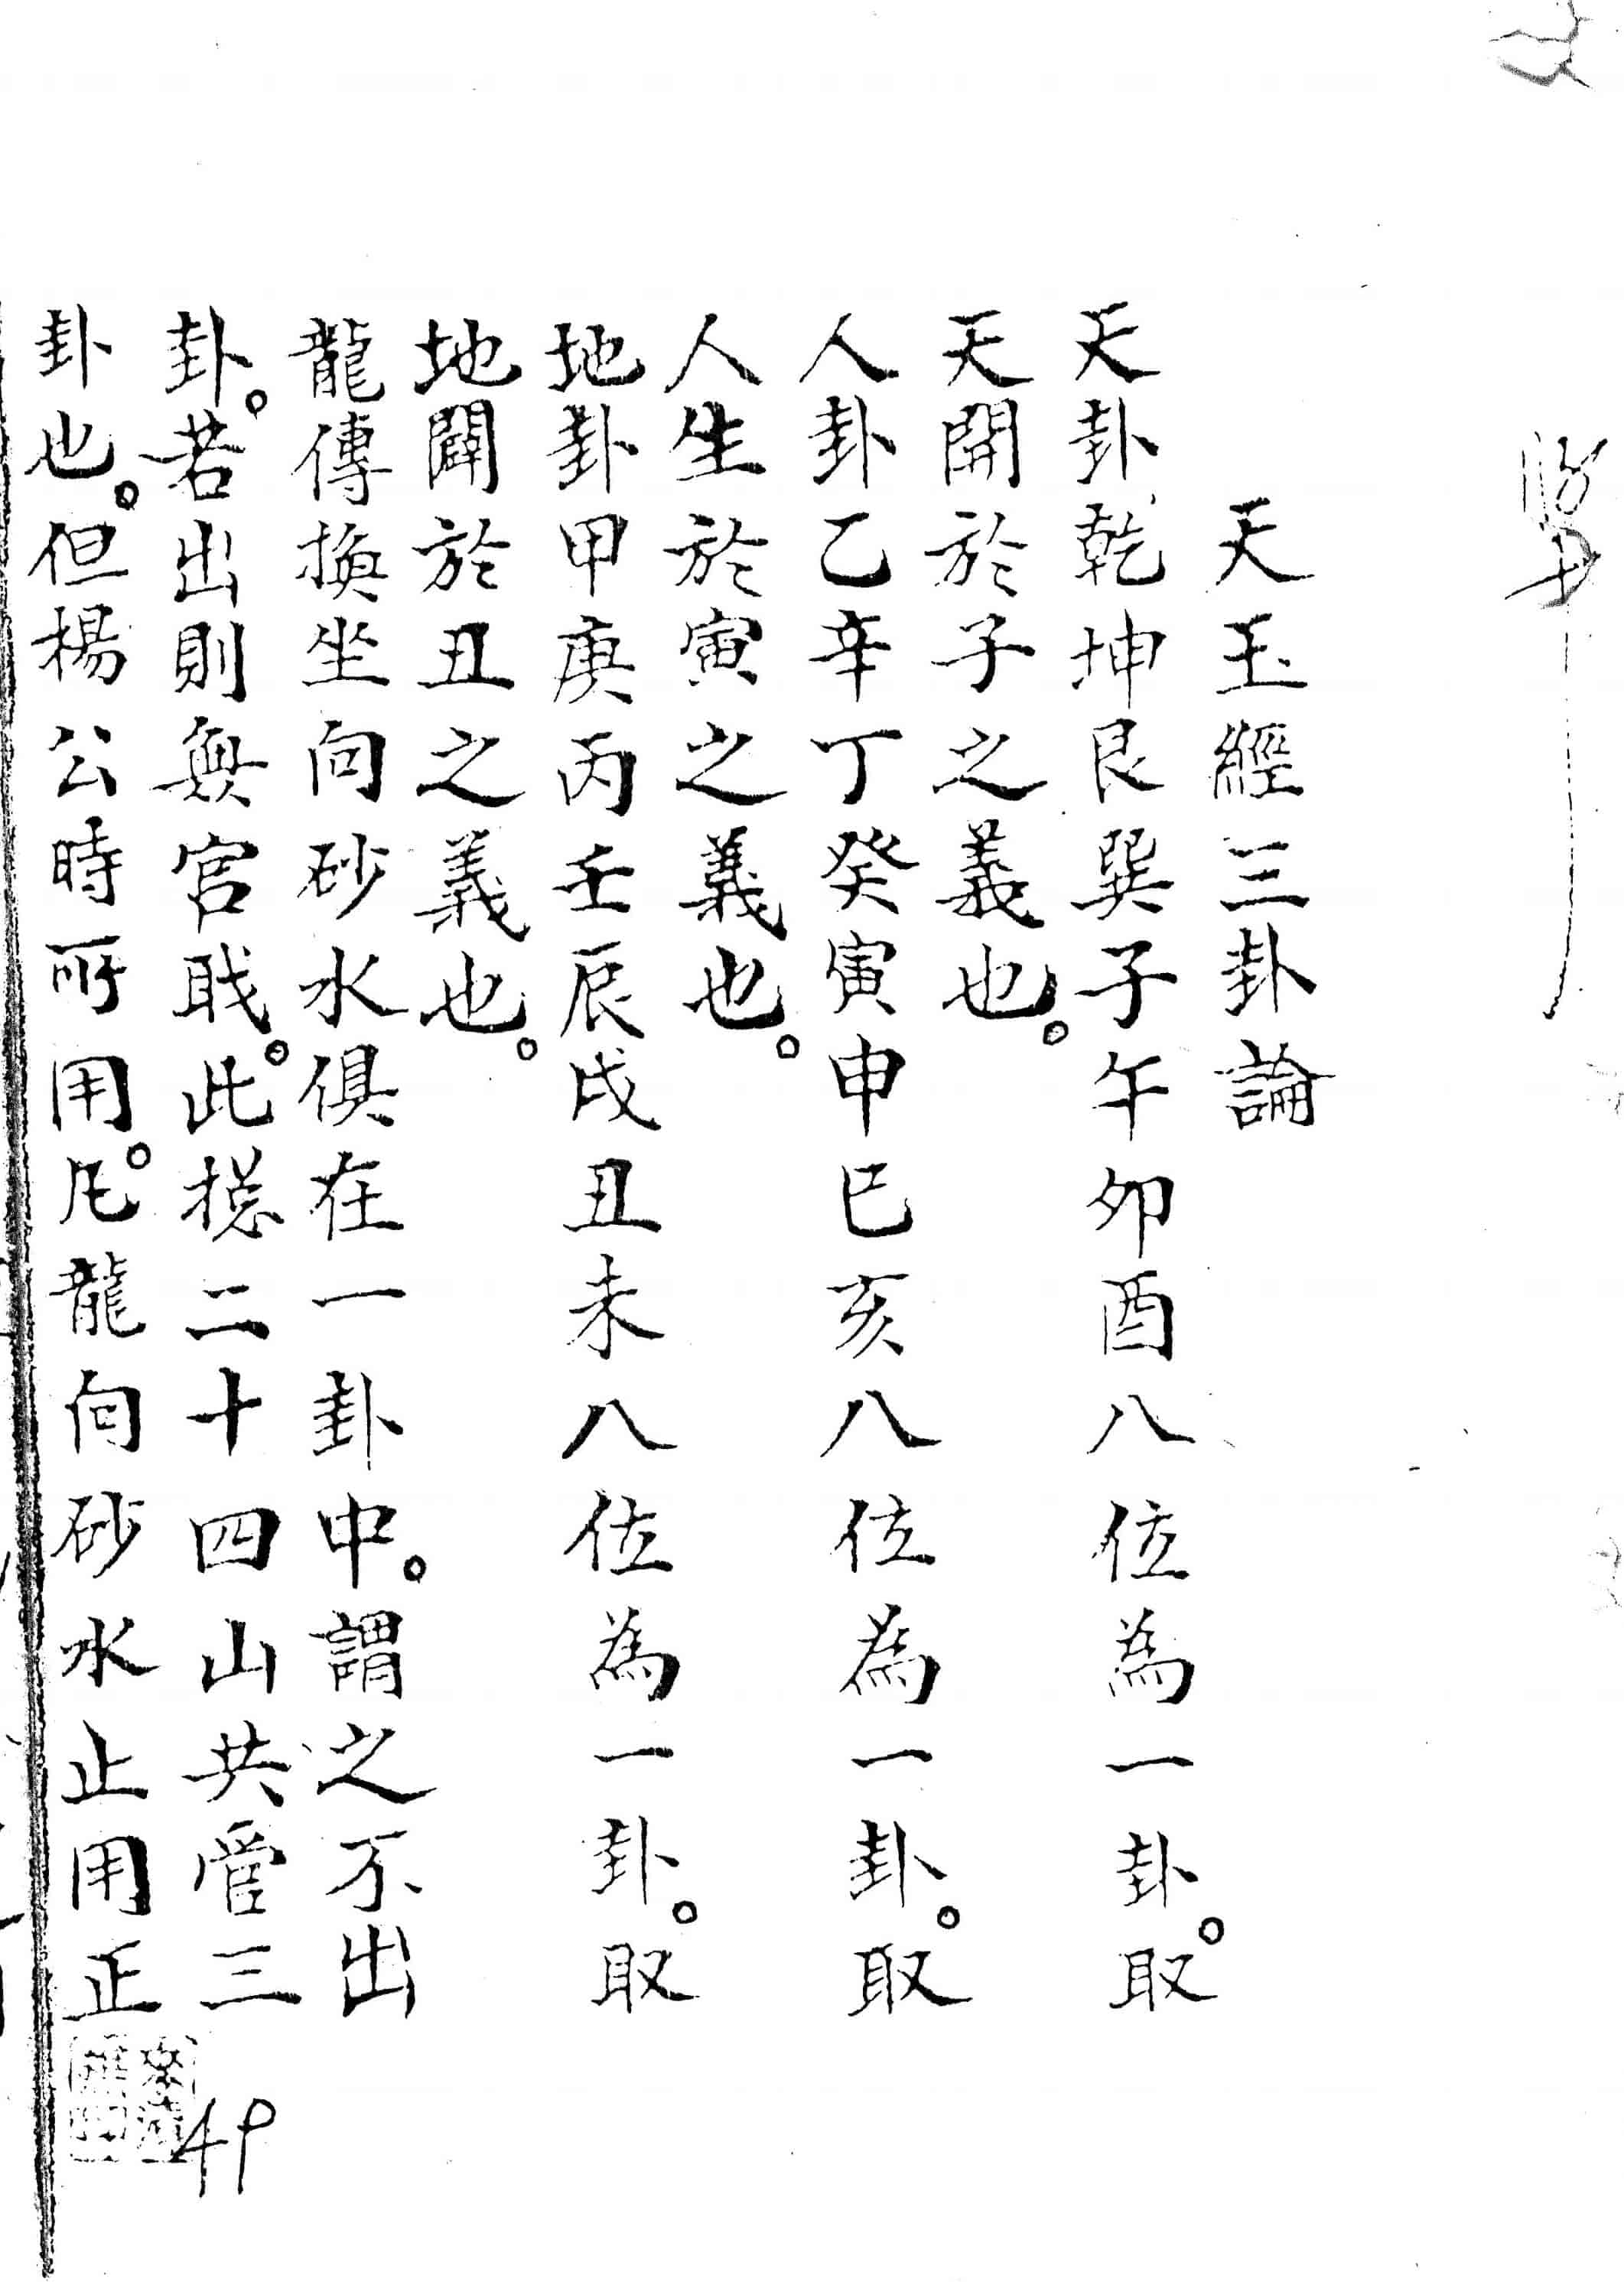 天玉經三卦論
天卦乾坤艮巽子午卯酉八位為一卦。取
天開於子之義也。
人卦乙辛丁癸寅申巳亥八位為一卦。取
人生於寅之義也。
地卦甲庚丙壬辰戌丑未八位為一卦。取
地闢於丑之義也。
龍傳換坐向砂水俱在一卦中。謂之不出
卦。若出則無官戝。此摠二十四山共管三
卦也。但楊公時所用。凡龍向砂水止用正
49